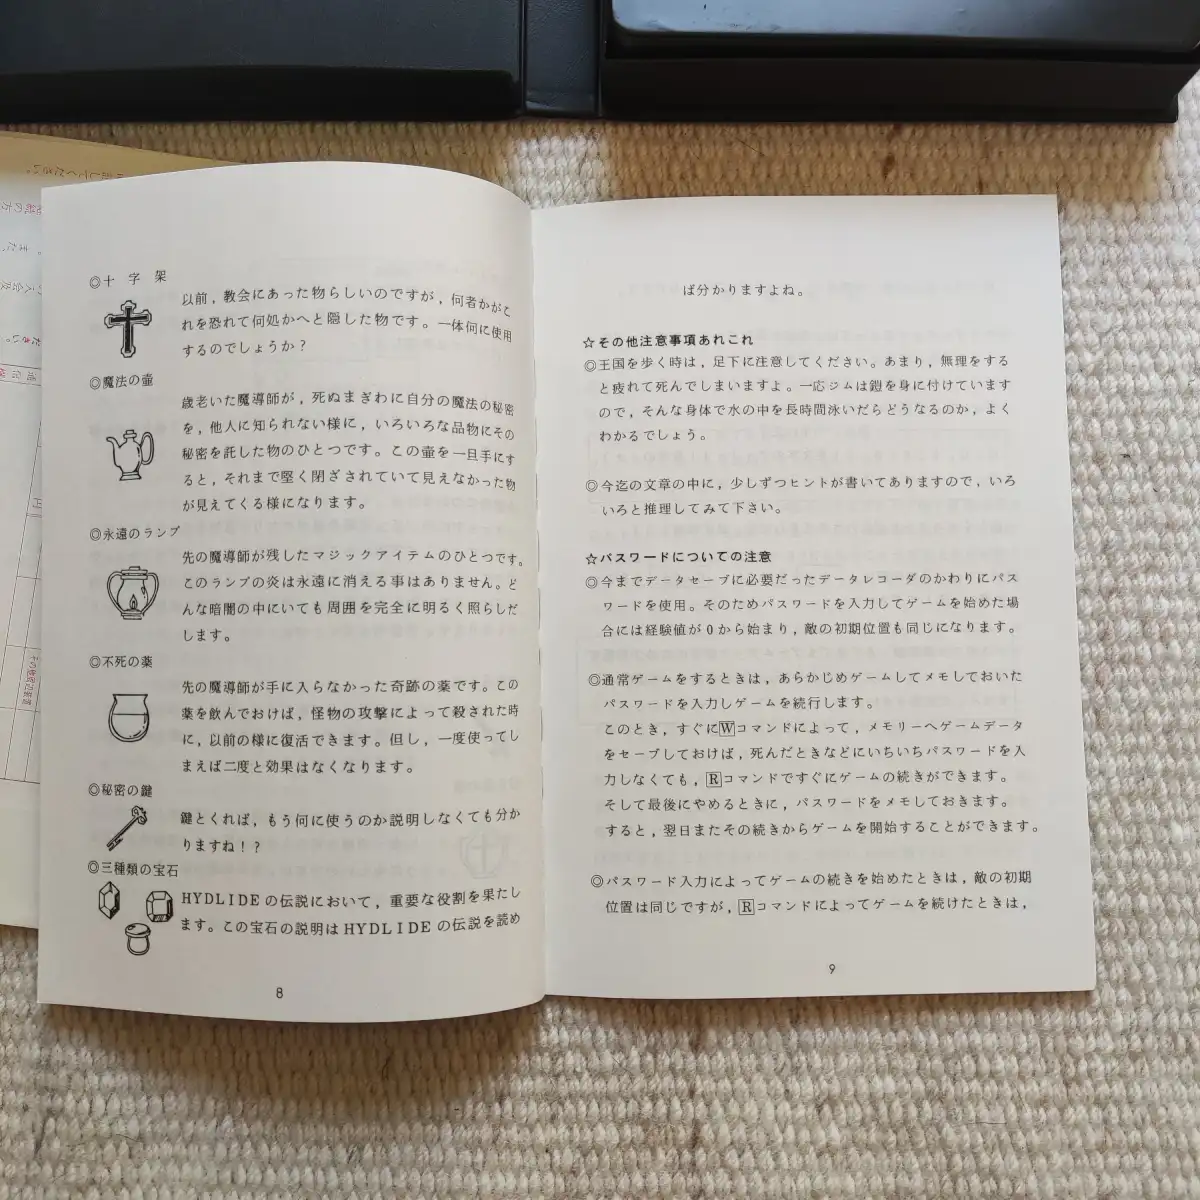 ◎十字架
以前，教会にあった物らしいのですが，何者かがこ
れを恐れて何処かへと隠した物です。一体何に使用
するのでしょうか？
◎魔法の壷
歳老いた魔導師が，死ぬまぎわに自分の魔法の秘密
を，他人に知られない様に，いろいろな品物にその
秘密を託した物のひとつです。この壷を一旦手にす
ると，それまで堅く閉ざされていて見えなかった物
が見えてくる様になります。
◎永遠のランプ
先の魔導師が残したマジックアイテムのひとつです。
このランプの炎は永遠に消える事はありません。ど
んな暗闇の中にいても周囲を完全に明るく照らしだ
します。
◎不死の薬
先の魔導師が手に入らなかった奇跡の薬です。この
薬を飲んでおけば，怪物の攻撃によって殺された時
に，以前の様に復活できます。但し，一度使ってし
まえば二度と効果はなくなります。
◎秘密の鍵
鍵とくれば，もう何に使うのか説明しなくても分か
りますね！？
◎三種類の宝石
HYDLIDEの伝説において，重要な役割を果たし
ます。この宝石の説明はHYDLIDEの伝説を読め
8
ば分かりますよね。
☆その他注意事項あれこれ
◎王国を歩く時は，足下に注意してください。あまり，無理をする
と疲れて死んでしまいますよ。一応ジムは鎧を身に付けています
ので，そんな身体で水の中を長時間泳いだらどうなるのか，よく
わかるでしょう。
◎今迄の文章の中に，少しずつヒントが書いてありますので，いろ
いろと推理してみて下さい。
☆パスワードについての注意
◎今までデータセーブに必要だったデータレコーダのかわりにパス
ワードを使用。そのためパスワードを入力してゲームを始めた場
合には経験値が0から始まり，敵の初期位置も同じになります。
◎通常ゲームをするときは，あらかじめゲームしてメモしておいた
パスワードを入力しゲームを続行します。
このとき，すぐにWコマンドによって，メモリーへゲームデータ
をセーブしておけば，死んだときなどにいちいちパスワードを入
力しなくても，Rコマンドですぐにゲームの続きができます。
そして最後にやめるときに，パスワードをメモしておきます。
すると，翌日またその続きからゲームを開始することができます。
◎パスワード入力によってゲームの続きを始めたときは，敵の初期
位置は同じですが，Rコマンドによってゲームを続けたときは，
9